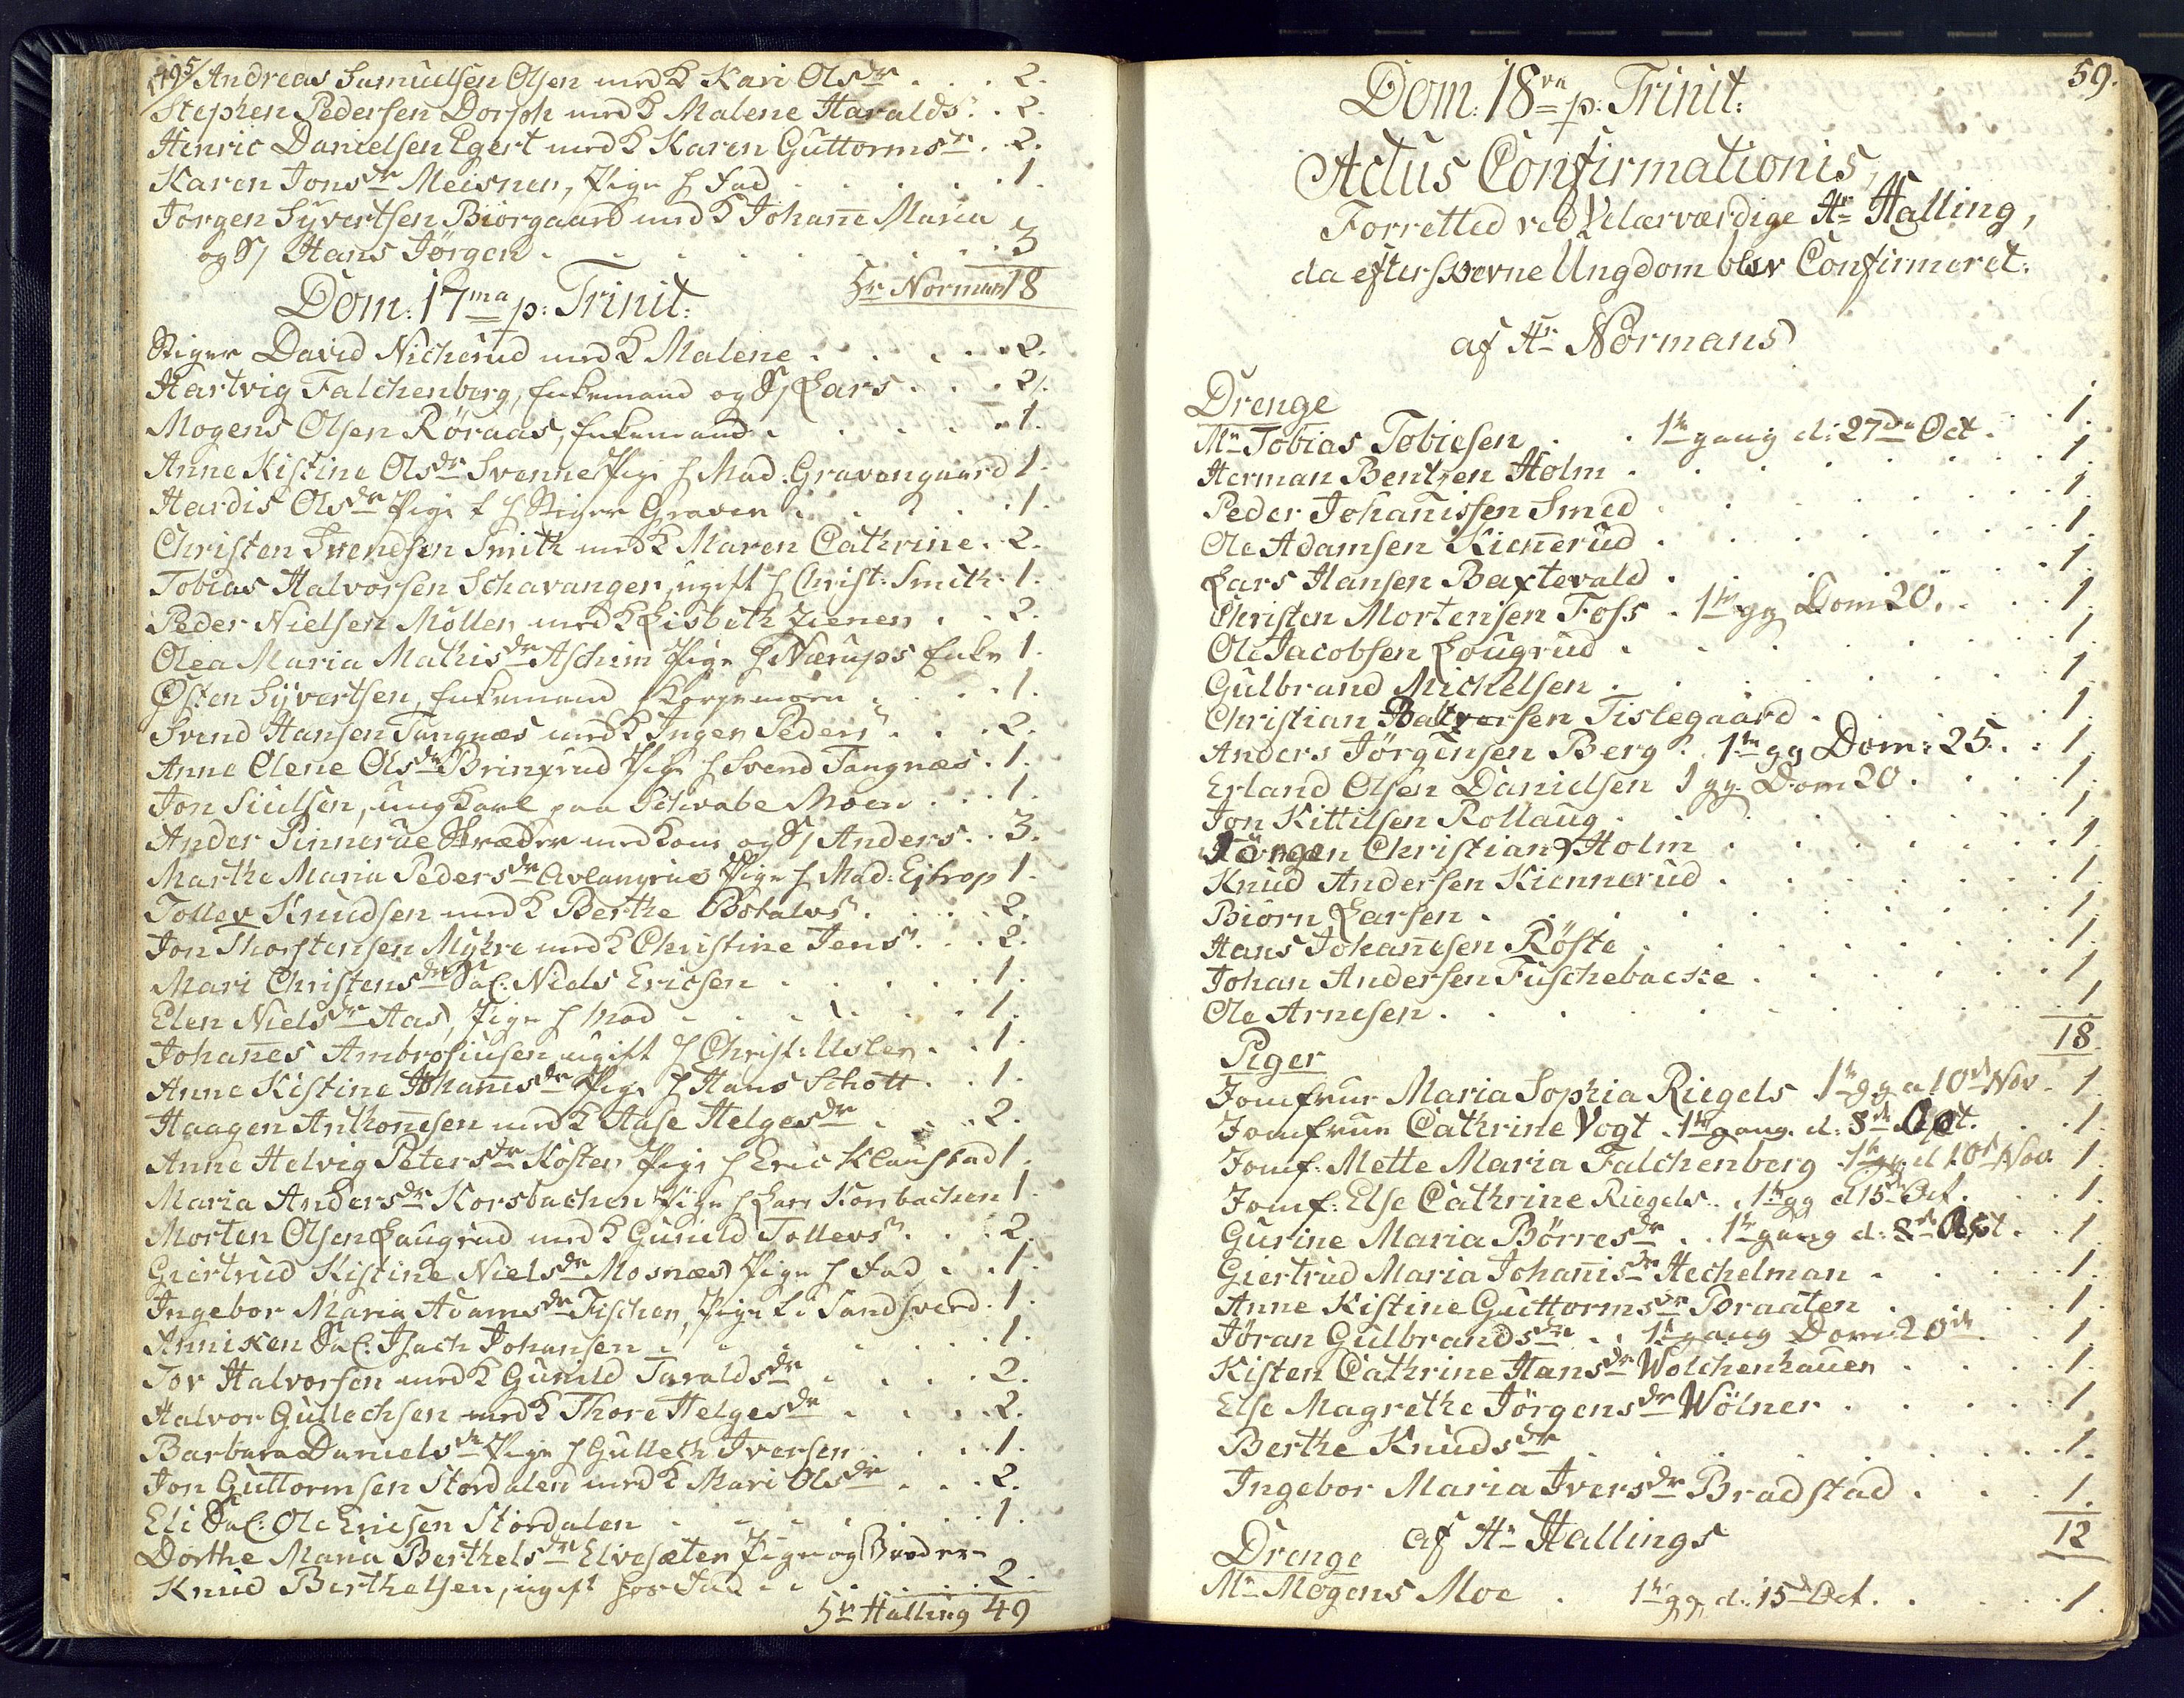 Andreas Samuelsen Olsen med K Kari Olsdr . . . 2.
Stephen Pedersen Dorph med K Malene Haralds . . 2.
Henric Danielsen Egert med K Karen Guttormsdr . 2.
Karen Jonsdr Meisner, Pige h Fad . . . 1.
Jörgen Syvertsen Biörgaard med K Johanne Maria
og S/ Hans Jörgen . . . 3
Hr Norman 18
Dom: 17ma p: Trinit:
Stiger David Nicherud med K Malene . . . 2.
Hartvig Falchenberg, Enkemand og S/ Lars . . . 2.
Mogens Olsen Röraas, Enkemand . . . 1.
Anne Kistine Olsdr Svenne Pige h Mad. Gravengaard 1.
Hardis Olsdr Pige h Stiger Graven . . . 1.
Christen Svendsen Smith med K Maren Cathrine . 2.
Tobias Halvorsen Schavanger, ugift h Christ: Smith . 1.
Peder Nielsen Möller med K Lisbeth Zienen . . 2.
Olea Maria Mathisdr Aschim Pige h Nærups Enke 1.
Østen Syvertsen, Enkemand . . . 1.
Svend Hansen Tangnæs med K Inger Peders . . . 2.
Anne Olene Olsdr Bringrud Pige h Svend Tangnæs . 1.
Jon Siulsen, ung Karl paa Schwabe Moen . . . 1.
Ander Pinnerue Skræder med Kone og S/ Anders . . 3.
Marthe Maria Pedersdr Pige h Mad: Ejtrop 1.
Tollev Knudsen med K Berthe Botalvs . . . 2.
Jon Thorstensen Myhre med K Christine Jens . . . 2.
Mari Christensdr Sal: Niels Ericsen . . . 1.
Elen Nielsdr Aas, Pige h Mod . . . 1.
Johannes Ambrosiusen, ugift h Christ: Usler . . 1.
Anne Kistine Johannisdr Pige h Hans Schott . . 1.
Haagen Anthonisen med K Aase Helgesdr . . . 2.
Anne Helvig Petersdr Koster, Pige h Eric Klaustad 1.
Maria Andersdr Korsbachen Pige h Lars Korsbachen 1.
Morten Olsen Laugrud med K Gunild Tollevs . . . 2.
Giertrud Kistine Nielsdr Mosnæs Pige h Fad . . 1.
Ingebor Maria Adamsdr Fischer, Pige i Sandsverd . 1.
Anniken Sal: Isach Johansen . . . 1.
Tor Halvorsen med K Gunild Taraldsdr . . . 2.
Halvor Gullechsen med K Thore Helgesdr . . . 2.
Barbara Danielsdr Pige h Gulleth Iversen . . . 1.
Jon Guttormsen Stordalen med K Mari Olsdr . . . 2.
Eli Sal: Ole Ericsen Stordalen . . . 1.
Dorthe Maria Berthelsdr Elvesæter Pige og Broder
Knud Berthelsen, ugift hos Fad . . . 2.
Hr Halling 49
59.
Dom: 18va p: Trinit:
Actus Confirmationis,
Forretted ved Velærværdige Hr Halling,
da efterskrevne Ungdom blev Confirmeret:
af Hr Normans
Drenge
Mr Tobias Tobiesen . . 1te gang d: 27de Oct . . . 1.
Herman Bentzen Holm . . . 1
Peder Johannissen Smed . . . 1
Ole Adamsen Kiennerud . . . 1
Lars Hansen Baxtevald . . . 1
Christen Mortensen Foss . 1te gg Dom 20 . . . 1
Ole Jacobsen Lougrud . . . 1
Gulbrand Michelsen . . . 1
Christian Halvorsen Tislegaard . . . 1
Anders Jörgensen Berg . 1te gg Dom: 25 . . 1
Erland Olsen Danielsen 1 gg. Dom 20 . . . 1
Jon Kittilsen Rollaug . . . 1
Jörgen Christian Holm . . . 1
Knud Andersen Kiennerud . . . 1
Biörn Larsen . . . 1
Hans Johannesen Röste . . . 1
Johan Andersen Fuschebacke . . . 1
Ole Arnesen . . . 1
18
Piger
Jomfrue Maria Sophia Riegels 1te gg d 10de Nov . 1
Jomfrue Cathrine Vogt . 1te gang. d: 8de Oct. . . 1.
Jomf: Mette Maria Falchenberg 1te gg d 10de Nov. 1
Jomf: Else Cathrine Riegels . . 1te gg d 15de Oct. . . 1.
Gurine Maria Börresdr . . 1te gang d: 8de Oct . . 1
Giertrud Maria Johannisdr Hechelman . . . 1.
Anne Kistine Guttormsdr Braaten . . . 1.
Jöran Gulbrandsdr . . 1te gang Dom 20de . . 1
Kisten Cathrine Hansdr Wolchenhauer . . . 1.
Else Magrethe Jörgensdr Wölner . . . 1.
Berthe Knudsdr . . . 1.
Ingebor Maria Iversdr Bradstad . . . 1.
12
af Hr Hallings
Drenge
Mr Mogens Moe . 1te gg. d. 15de Oct. . . . 1.